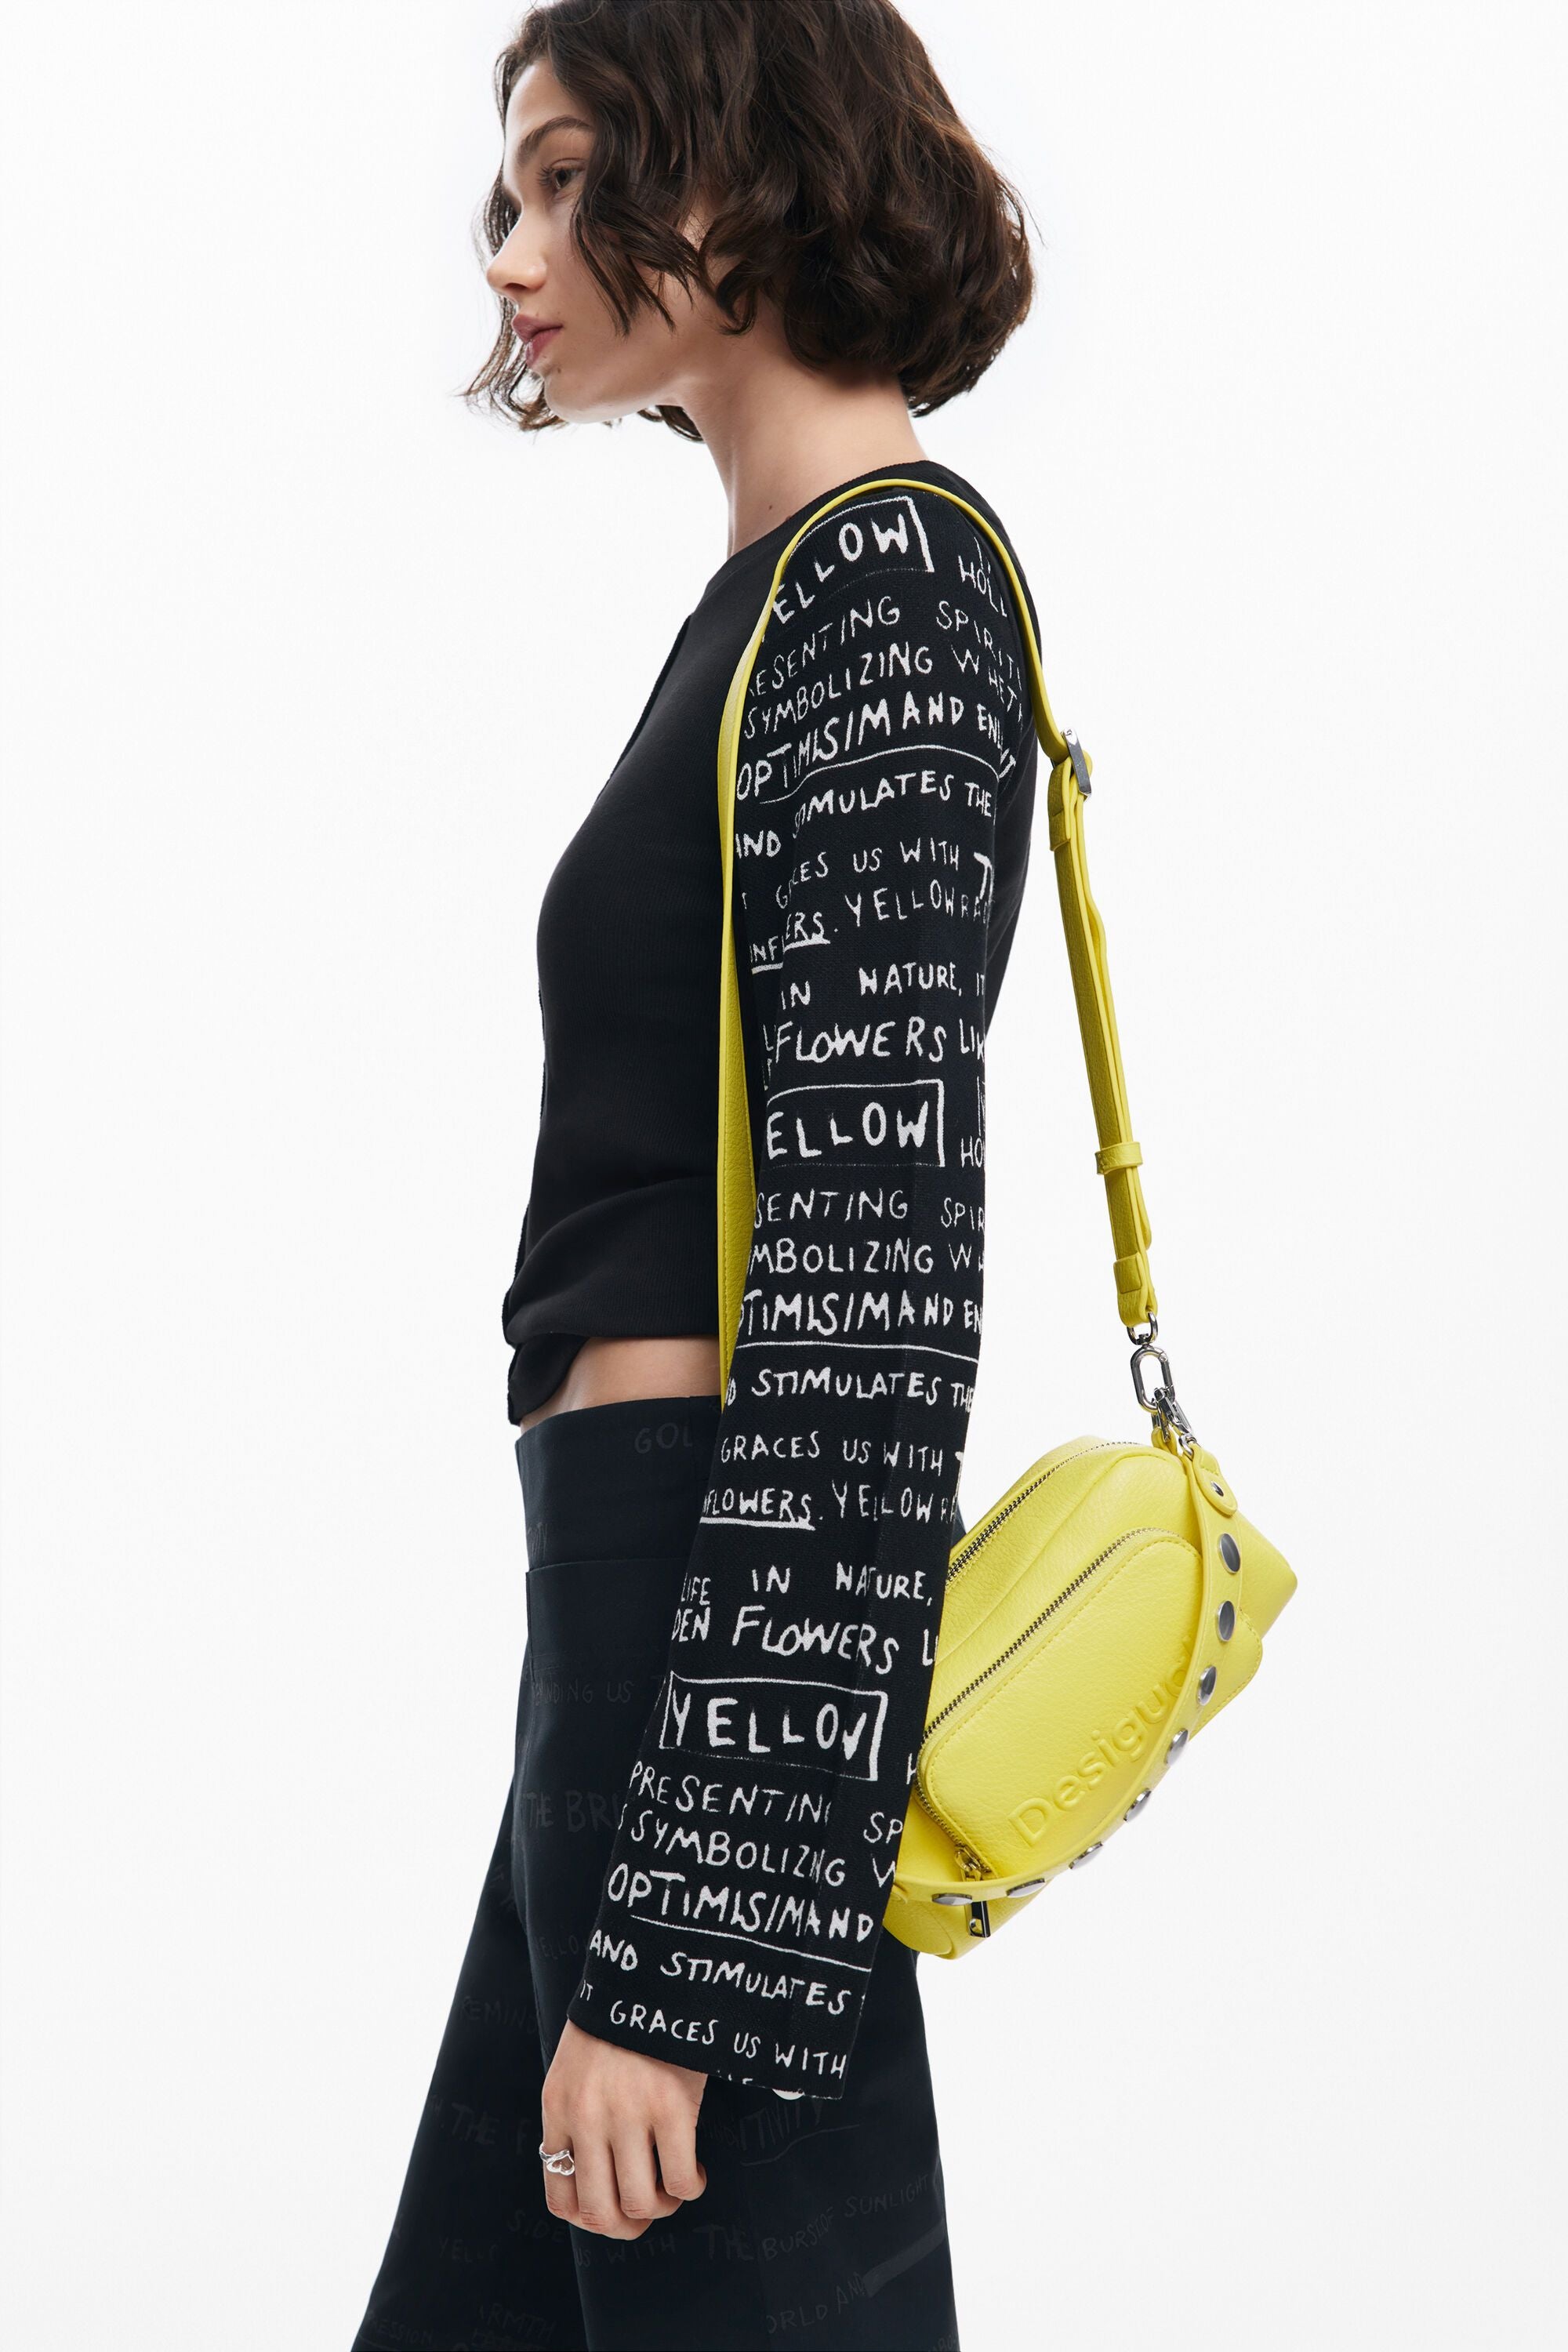 ELLOW
HOLL
ESENTING SPIRIT
SYMBOLIZING WHET
OPTIMISIM AND EN
AND STIMULATES THE
GRACES US WITH T
INFLERS. YELLOW
IN NATURE, IT
FLOWERS LIK
ELLOW
HO
SENTING SPIR
MBOLIZING W
TIMISIM AND EN
D STIMULATES THE
GRACES US WITH T
FLOWERS. YELLOW
LIFE IN NATURE,
DEN FLOWERS L
YELLOW
PRESENTING SP
SYMBOLIZING W
OPTIMISIM AND
AND STIMULATES
IT GRACES US WITH
Desigu
GOL
NDING US
THE BRI
ELLO
REMIN
THE F
TIVITY
SIDE
US WITH THE BURST OF SUNLIGHT
ORLD AND
RMTH